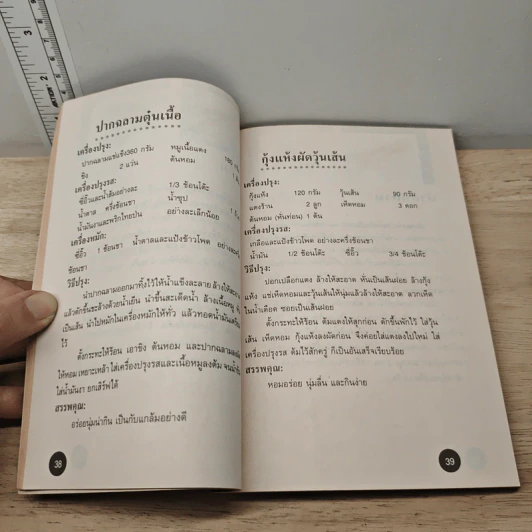 ปากฉลามตุ๋นเนื้อ
เครื่องปรุง:
ปากฉลามแช่แข็ง360 กรัม หมูเนื้อแดง
ขิง 2 แว่น ต้นหอม
เครื่องปรุงรส:
ซีอิ๊วและน้ำส้มอย่างละ 1/3 ช้อนโต๊ะ
น้ำตาล ครึ่งช้อนชา น้ำซุป
น้ำมันงาและพริกไทยป่น อย่างละเล็กน้อย
เครื่องหมัก:
ซีอิ๊ว 1 ช้อนชา น้ำตาลและแป้งข้าวโพด อย่างละครึ่ง
ช้อนชา
วิธีปรุง:
นำปากฉลามออกมาทิ้งไว้ให้น้ำแข็งละลาย ล้างให้สะอาด
แล้วตักขึ้นชะล้างด้วยน้ำเย็น นำขึ้นสะเด็ดน้ำ ล้างเนื้อหมู
เป็นเส้น นำไปหมักในเครื่องหมักให้ทั่ว แล้วทอดน้ำมัน
ไว้
ตั้งกระทะให้ร้อน เอาขิง ต้นหอม และปากฉลามลง
ให้หอม เหยาะเหล้า ใส่เครื่องปรุงรสและเนื้อหมูลงต้ม
ใส่น้ำมันงา ยกเสิร์ฟได้
สรรพคุณ:
อร่อยนุ่มน่ากิน เป็นกับแกล้มอย่างดี
38
กุ้งแห้งผัดวุ้นเส้น
เครื่องปรุง:
กุ้งแห้ง 120 กรัม วุ้นเส้น 90 กรัม
แตงร้าน 2 ลูก เห็ดหอม 3 ดอก
ต้นหอม (หั่นท่อน) 1 ต้น
เครื่องปรุงรส:
เกลือและแป้งข้าวโพด อย่างละครึ่งช้อนชา
น้ำมัน 1/2 ช้อนโต๊ะ ซีอิ๊ว 3/4 ช้อนโต๊ะ
วิธีปรุง:
ปอกเปลือกแตง ล้างให้สะอาด หั่นเป็นเส้นฝอย ล้างกุ้ง
แห้ง แช่เห็ดหอมและวุ้นเส้นให้นุ่มแล้วล้างให้สะอาด ลวกเห็ด
ในน้ำเดือด ซอยเป็นเส้นฝอย
ตั้งกระทะให้ร้อน ต้มแตงให้สุกก่อน ตักขึ้นพักไว้ ใส่วุ้น
เส้น เห็ดหอม กุ้งแห้งลงผัดก่อน จึงค่อยใส่แตงลงไปใหม่ ใส่
เครื่องปรุงรส ต้มไว้สักครู่ ก็เป็นอันเสร็จเรียบร้อย
สรรพคุณ:
หอมอร่อย นุ่มลื่น และกินง่าย
39